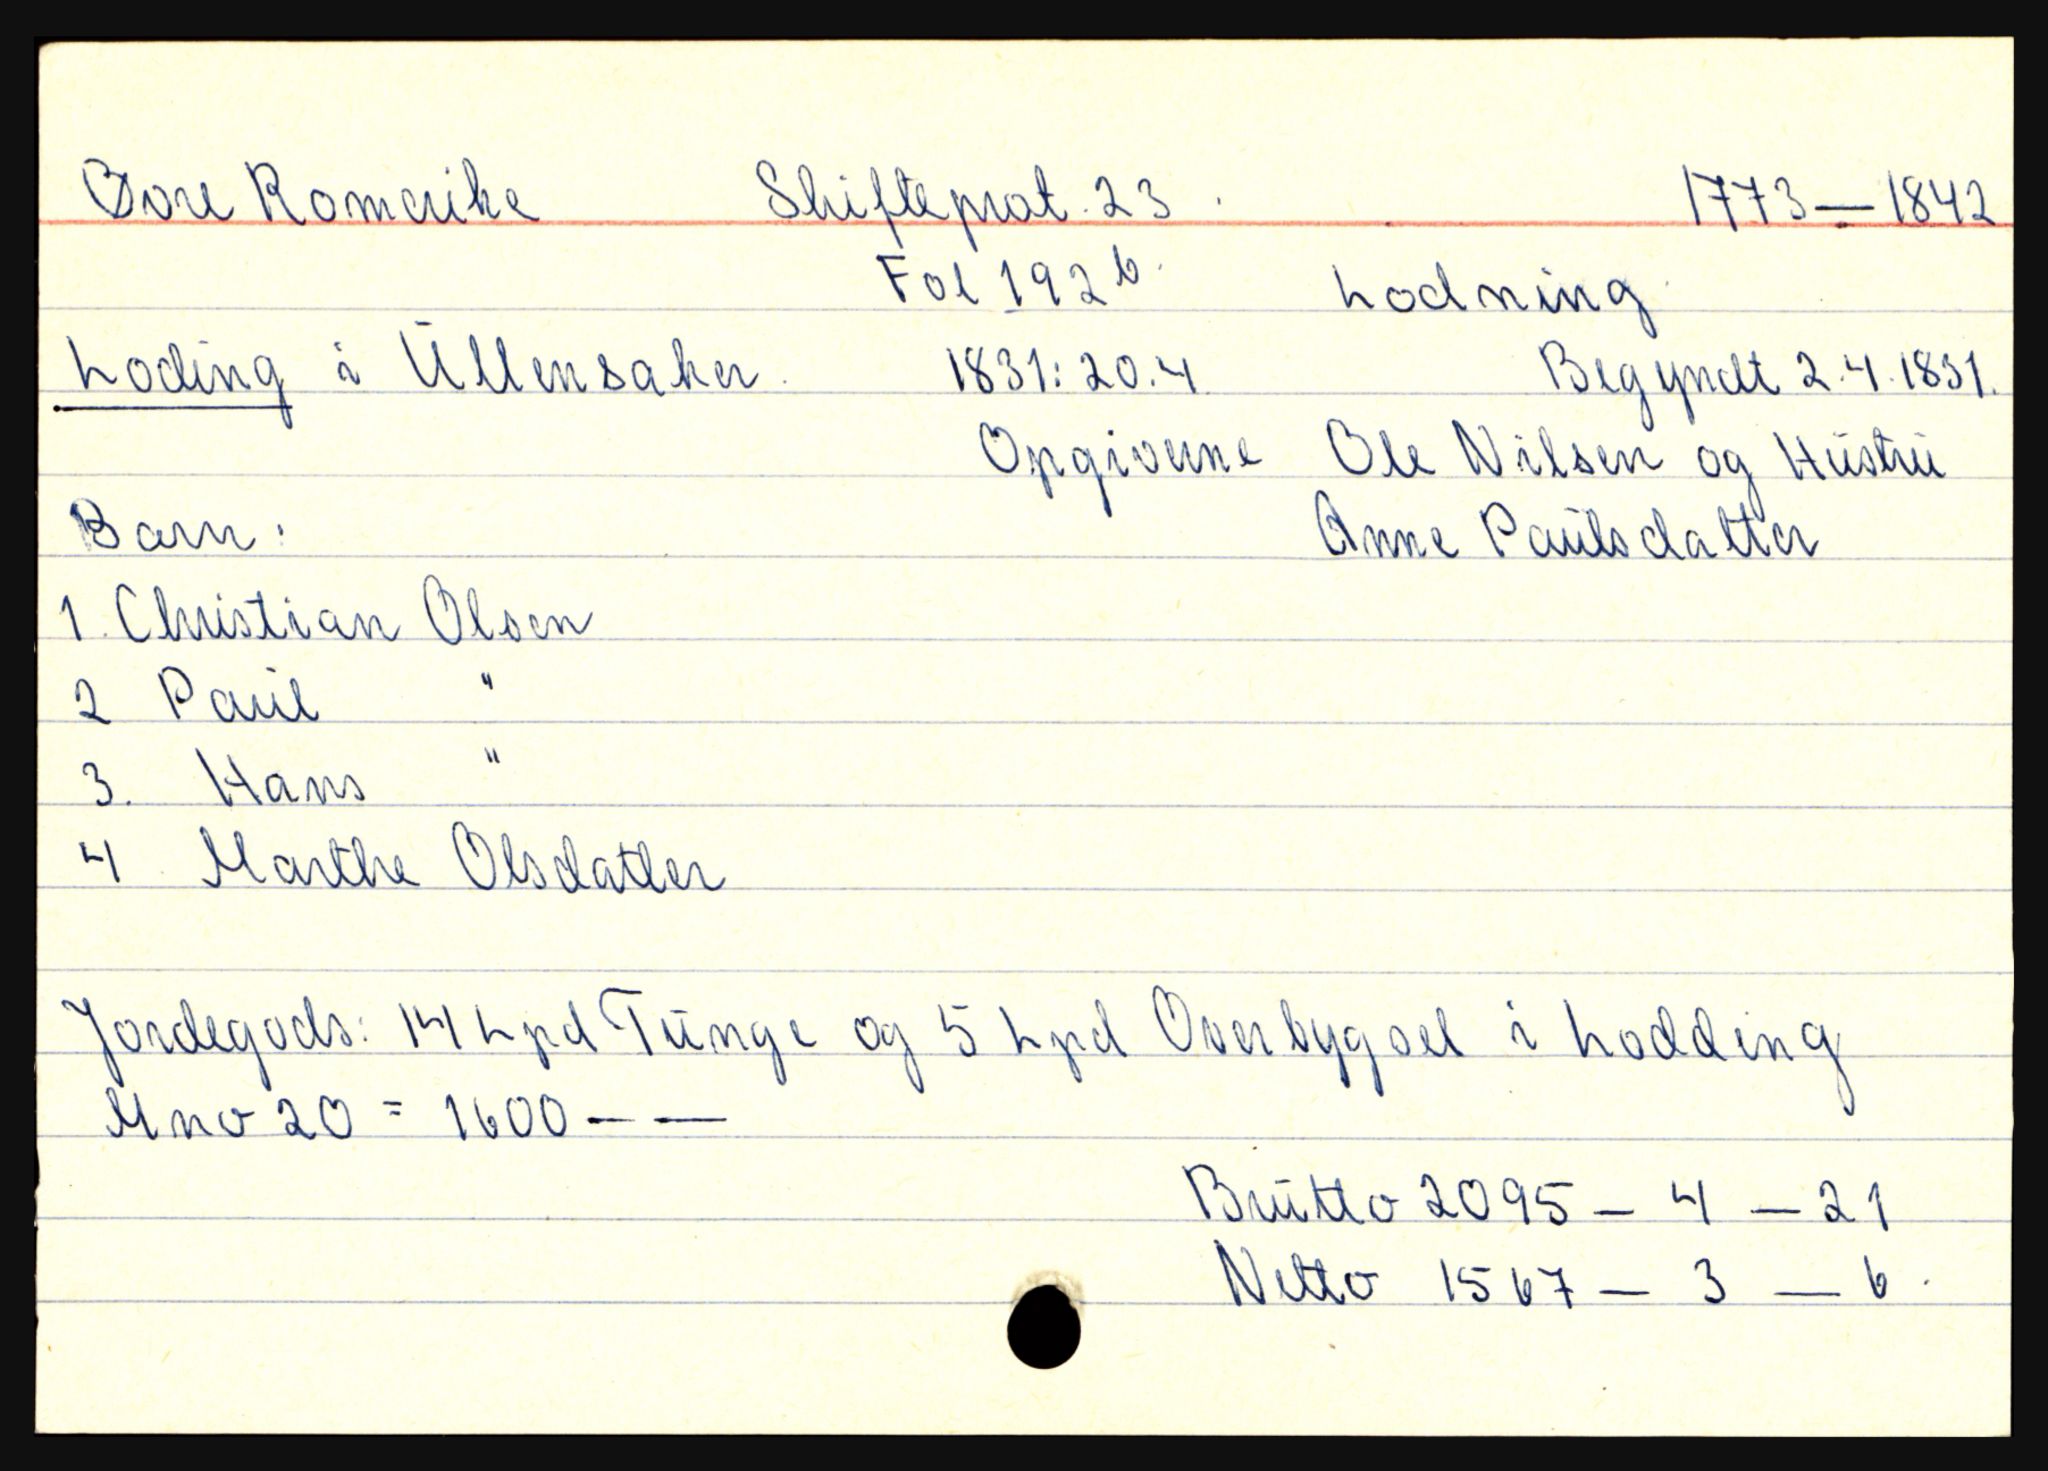 Øvre Romerike Skifteprot. 23. 1773 — 1842
Fol 192b. Lodning
Loding i Ullensaker. 1831: 20.4 Begyndt 2.4.1831.
Opgiverne Ole Nilsen og Hustru
Barn: Anne Paulsdatter
1. Christian Olsen
2 Paul "
3. Hans "
4 Marthe Olsdatter
Jordegods: 14 Lpd Tunge og 5 Lpd Overbygsel i Lodding
Mno 20 = 1600 — —
Brutto 2095 — 4 — 21
Netto 1567 — 3 — 6.